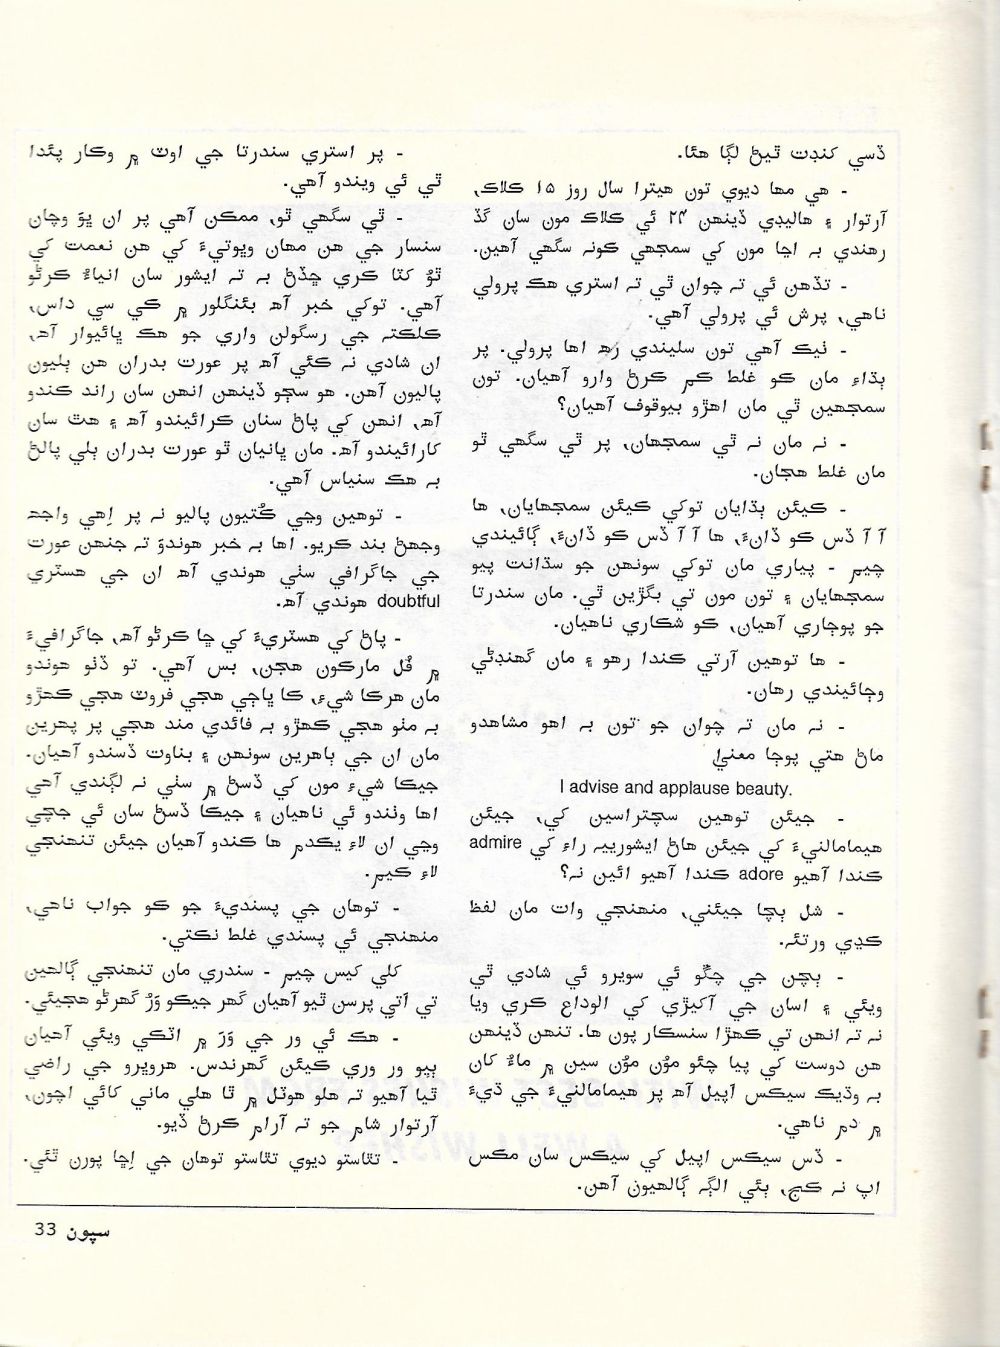 ڏسي کنڊت ٿيڻ لڳا هئا.
- هي مها ديوي تون هيترا سال روز ١٥ ڪلاڪ،
آرتوار ۽ هاليڊي ڏينهن ٢٤ ئي ڪلاڪ مون سان گڏ
رهندي بہ اڃا مون کي سمجهي ڪونہ سگهي آهين.
- تڏهن ئي تہ چوان ٿي تہ استري هڪ پرولي
ناهي، پرش ئي پرولي آهي.
- ٺيڪ آهي تون سليندي رهہ اها پرولي. پر
ٻڌاءِ مان ڪو غلط ڪم ڪرڻ وارو آهيان. تون
سمجهين ٿي مان اهڙو بيوقوف آهيان؟
- نہ مان نہ ٿي سمجهان، پر ٿي سگهي ٿو
مان غلط هجان.
- ڪيئن ٻڌايان توکي ڪيئن سمجهايان، ها
آ آ ڏس ڪو ڏانءُ، ها آ آ ڏس ڪو ڏانءُ، ڳائيندي
چيم - پياري مان توکي سونهن جو سڌانت پيو
سمجهايان ۽ تون مون تي بگڙين ٿي. مان سندرتا
جو پوڄاري آهيان، ڪو شڪاري ناهيان.
- ها توهين آرتي ڪندا رهو ۽ مان گهنڊڻي
وڄائيندي رهان.
- نہ مان تہ چوان جو تون بہ اهو مشاهدو
ماڻ هتي پوڄا معنيٰ
I advise and applause beauty.
- جيئن توهين سچتراسين کي، جيئن
هيمامالنيءَ کي جيئن هاڻ ايشورييہ راءِ کي admire
ڪندا آهيو adore ڪندا آهيو ائين نہ؟
- شل ٻچا جيئني، منهنجي وات مان لفظ
ڪڍي ورتئہ.
- ٻچن جي چڱو ئي سويرو ئي شادي ٿي
ويئي ۽ اسان جي آکيڙي کي الوداع ڪري ويا
نہ تہ انهن تي ڪهڙا سنسڪار پون ها. تنهن ڏينهن
هن دوست کي پيا چئو مؤن مؤن سين ۾ ماءُ کان
بہ وڌيڪ سيڪس اَپيل آهہ پر هيمامالنيءَ جي ڌيءَ
۾ دم ناهي.
- ڏس سيڪس اپيل کي سيڪس سان مڪس
اپ نہ ڪج، ٻئي الڳہ ڳالهيون آهن.
- پر استري سندرتا جي اوٽ ۾ وڪار پئدا
ٿي ئي ويندو آهي.
- ٿي سگهي ٿو، ممڪن آهي پر ان ڀوَ وچان
سنسار جي هن مهان ويڀوتيءَ کي هن نعمت کي
ٿوُ ڪٽا ڪري ڇڏڻ بہ تہ ايشور سان انياءُ ڪرڻو
آهي. توکي خبر آهہ بئنگلور ۾ ڪي سي داس،
ڪلڪتہ جي رسگولن واري جو هڪ ڀائيوار آهہ،
ان شادي نہ ڪئي آهہ پر عورت بدران هن ٻليون
پاليون آهن. هو سڄو ڏينهن انهن سان راند ڪندو
آهہ، انهن کي پاڻ سنان ڪرائيندو آهہ ۽ هٿ سان
کارائيندو آهہ. مان ڀانيان ٿو عورت بدران ٻلي پالڻ
بہ هڪ سنياس آهي.
- توهين وڃي ڪُتيون پاليو نہ پر اِهي واجهہ
وجهڻ بند ڪريو. اها بہ خبر هوندوَ تہ جنهن عورت
جي جاگرافي سٺي هوندي آهہ ان جي هسٽري
doubtful هوندي آهہ.
- پاڻ کي هسٽريءَ کي ڇا ڪرڻو آهہ، جاگرافيءَ
۾ فُل مارڪون هجن، بس آهي. تو ڏٺو هوندو
مان هرڪا شيءِ، ڪا ڀاڄي هجي فروٽ هجي کهڙو
بہ مٺو هجي کهڙو بہ فائدي مند هجي پر پهرين
مان ان جي ٻاهرين سونهن ۽ بناوت ڏسندو آهيان.
جيڪا شيءِ مون کي ڏسڻ ۾ سٺي نہ لڳندي آهي
اها وٺندو ئي ناهيان ۽ جيڪا ڏسڻ سان ئي جچي
وڃي ان لاءِ يڪدم ها ڪندو آهيان جيئن تنهنجي
لاءِ ڪيم.
- توهان جي پسنديءَ جو ڪو جواب ناهي،
منهنجي ئي پسندي غلط نڪتي.
کلي کيس چيم - سندري مان تنهنجي ڳالهين
تي اَتي پرسن ٿيو آهيان گهر جيڪو وَرُ گهرڻو هجيئي.
- هڪ ئي ور جي وَرَ ۾ اٽڪي ويئي آهيان
ٻيو ور وري ڪيئن گهرندس. هروڀرو جي راضي
ٿيا آهيو تہ هلو هوٽل ۾ ٿا هلي ماني کائي اچون،
آرتوار شام جو تہ آرام ڪرڻ ڏيو.
- تٿاستو ديوي تٿاستو توهان جي اِڇا پورن ٿئي.
سپون 33